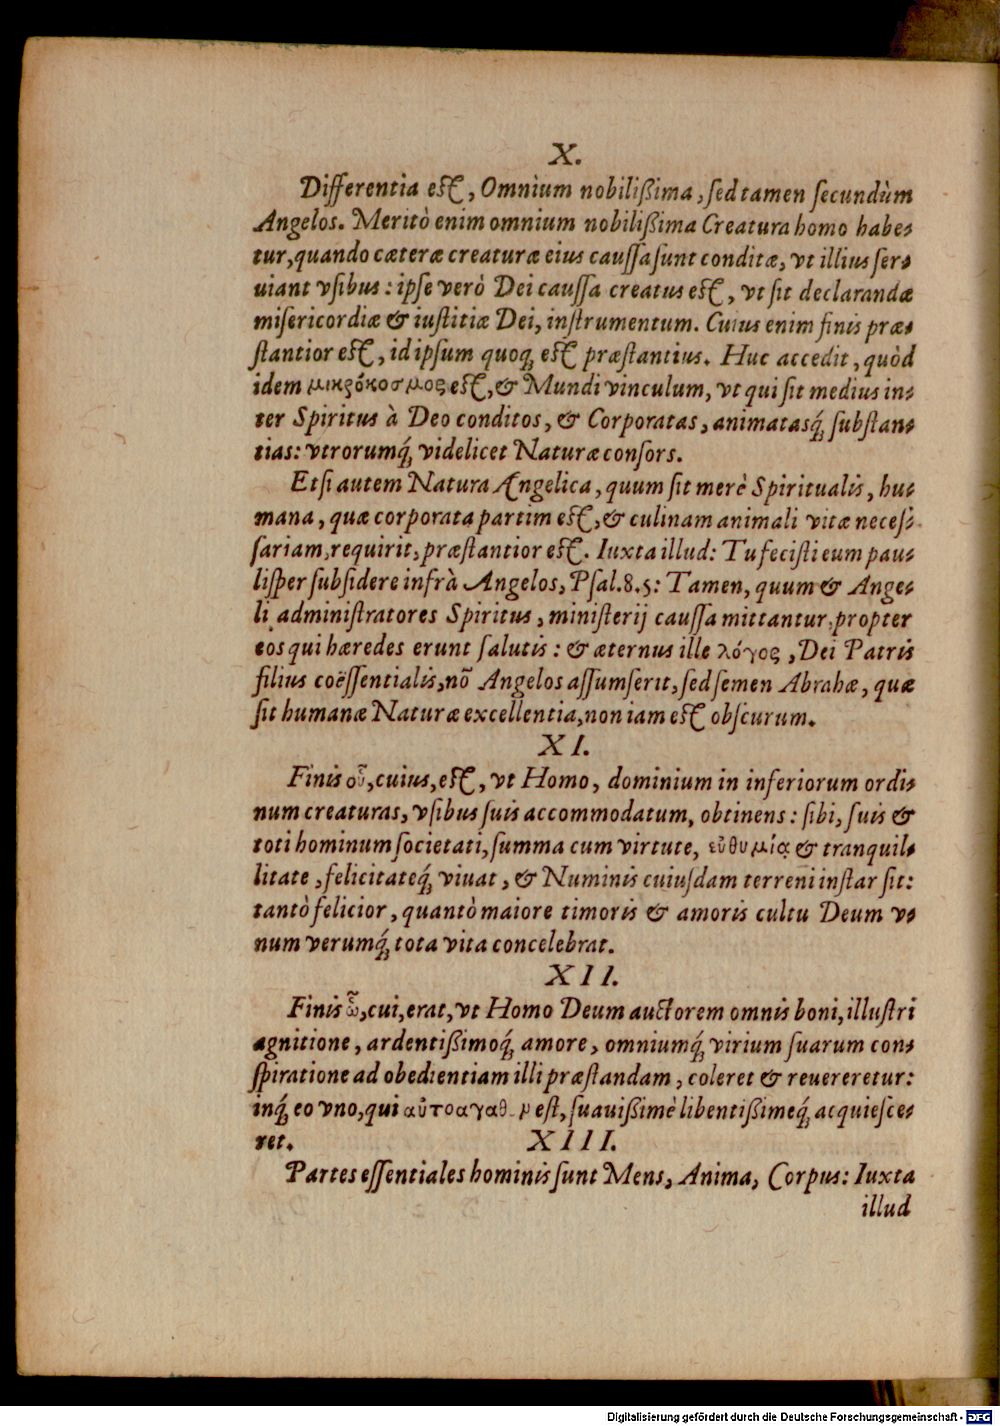 X.
Differentia est, Omnium nobilißima, sed tamen secundùm
Angelos. Meritò enim omnium nobilißima Creatura homo habe-
tur, quando cæteræ creaturæ eius caussa sunt conditæ, vt illius ser-
uiant vsibus: ipse verò Dei caussa creatus est, vt sit declarandæ
misericordiæ & iustitiæ Dei, instrumentum. Cuius enim finis præ-
stantior est, id ipsum quoq; est præstantius. Huc accedit, quòd
idem μικρόκοσμος est, & Mundi vinculum, vt qui sit medius in-
ter Spiritus à Deo conditos, & Corporatas, animatasq́; substan-
tias: vtrorumq́; videlicet Naturæ consors.
Etsi autem Natura Angelica, quum sit merè Spiritualis, hu-
mana, quæ corporata partim est, & culinam animali vitæ neces-
sariam, requirit, præstantior est. Iuxta illud: Tu fecisti eum pau-
lisper subsidere infrà Angelos, Psal. 8. 5: Tamen, quum & Ange-
li administratores Spiritus, ministerij caussa mittantur, propter
eos qui hæredes erunt salutis: & æternus ille λόγος, Dei Patris
filius coëssentialis, nō Angelos assumserit, sed semen Abrahæ, quæ
sit humanæ Naturæ excellentia, non iam est obscurum.
XI.
Finis οὗ, cuius, est, vt Homo, dominium in inferiorum ordi-
num creaturas, vsibus suis accommodatum, obtinens: sibi, suis &
toti hominum societati, summa cum virtute, εὐθυμίᾳ & tranquil-
litate, felicitateq́; viuat, & Numinis cuiusdam terreni instar sit:
tantò felicior, quantò maiore timoris & amoris cultu Deum v-
num verumq́; tota vita concelebrat.
XII.
Finis ᾧ, cui, erat, vt Homo Deum auctorem omnis boni, illustri
agnitione, ardentißimoq́; amore, omniumq́; virium suarum con-
spiratione ad obedientiam illi præstandam, coleret & reuereretur:
inq́; eo vno, qui est, suauißimè libentißimeq́; acquiesce-
ret. XIII.
Partes essentiales hominis sunt Mens, Anima, Corpus: Iuxta
illud
Digitalisierung gefördert durch die Deutsche Forschungsgemeinschaft - DFG